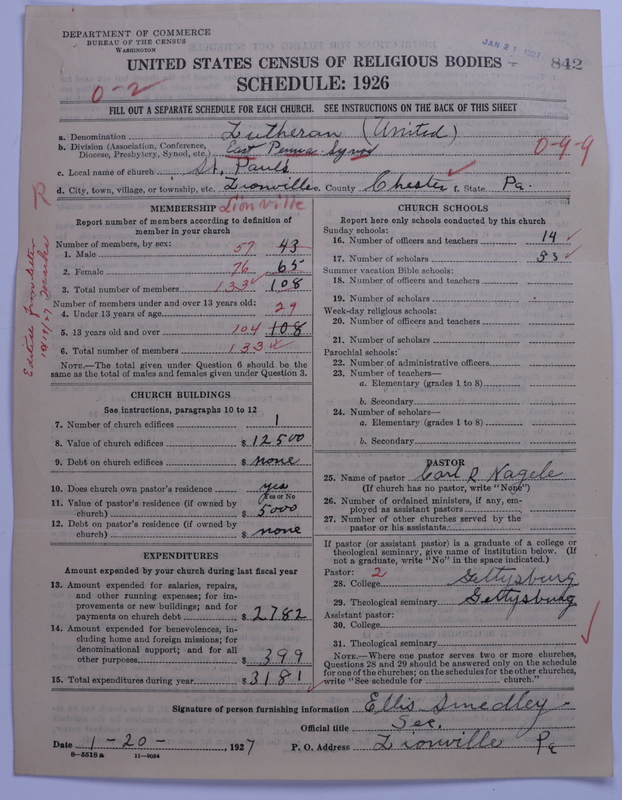 DEPARTMENT OF COMMERCE
BUREAU OF THE CENSUS
WASHINGTON
JAN 21 1927
842
UNITED STATES CENSUS OF RELIGIOUS BODIES
SCHEDULE: 1926
0-2
FILL OUT A SEPARATE SCHEDULE FOR EACH CHURCH. SEE INSTRUCTIONS ON THE BACK OF THIS SHEET
a. Denomination Lutheran (United)
b. Division (Association, Conference, Diocese, Presbytery, Synod, etc.) East Penna. Synod
0-9-9
c. Local name of church St. Pauls
d. City, town, village, or township, etc. Lionville e. County Chester f. State Pa.
Lionville
R
MEMBERSHIP
Report number of members according to definition of
member in your church
Number of members, by sex:
1. Male 57 43
2. Female 76 65
3. Total number of members 133 108
Number of members under and over 13 years old:
4. Under 13 years of age 29
5. 13 years old and over 104 108
6. Total number of members 133
NOTE.—The total given under Question 6 should be
same as the total of males and females given under Question 3.
Edited from letter
CHURCH BUILDINGS
See instructions, paragraphs 10 to 12
7. Number of church edifices 1
8. Value of church edifices $ 12500
9. Debt on church edifices $ none
10. Does church own pastor's residence yes
Yes or No
11. Value of pastor's residence (if owned by
church) $ 5000
12. Debt on pastor's residence (if owned by
church) $ none
EXPENDITURES
Amount expended by your church during last fiscal year
13. Amount expended for salaries, repairs,
and other running expenses; for im-
provements or new buildings; and for
payments on church debt $ 2782
14. Amount expended for benevolences, in-
cluding home and foreign missions; for
denominational support; and for all
other purposes $ 399
15. Total expenditures during year $ 3181
CHURCH SCHOOLS
Report here only schools conducted by this church
Sunday schools:
16. Number of officers and teachers 14
17. Number of scholars 53
Summer vacation Bible schools:
18. Number of officers and teachers
19. Number of scholars
Week-day religious schools:
20. Number of officers and teachers
21. Number of scholars
Parochial schools:
22. Number of administrative officers
23. Number of teachers—
a. Elementary (grades 1 to 8)
b. Secondary
24. Number of scholars—
a. Elementary (grades 1 to 8)
b. Secondary
PASTOR
25. Name of pastor Carl R Nagele
(If church has no pastor, write "None")
26. Number of ordained ministers, if any, em-
ployed as assistant pastors
27. Number of other churches served by the
pastor or his assistants
If pastor (or assistant pastor) is a graduate of a college or
theological seminary, give name of institution below. (If
not a graduate, write "No" in the space indicated.)
Pastor: 2
28. College Gettysburg
29. Theological seminary Gettysburg
Assistant pastor:
30. College
31. Theological seminary
NOTE.—Where one pastor serves two or more churches,
Questions 28 and 29 should be answered only on the schedule
for one of the churches; on the schedules for the other churches,
write "See schedule for church."
Signature of person furnishing information Ellis Smedley
Official title Sec.
Date 1-20-, 1927 P. O. Address Lionville Pa
8-5518a 11-9054